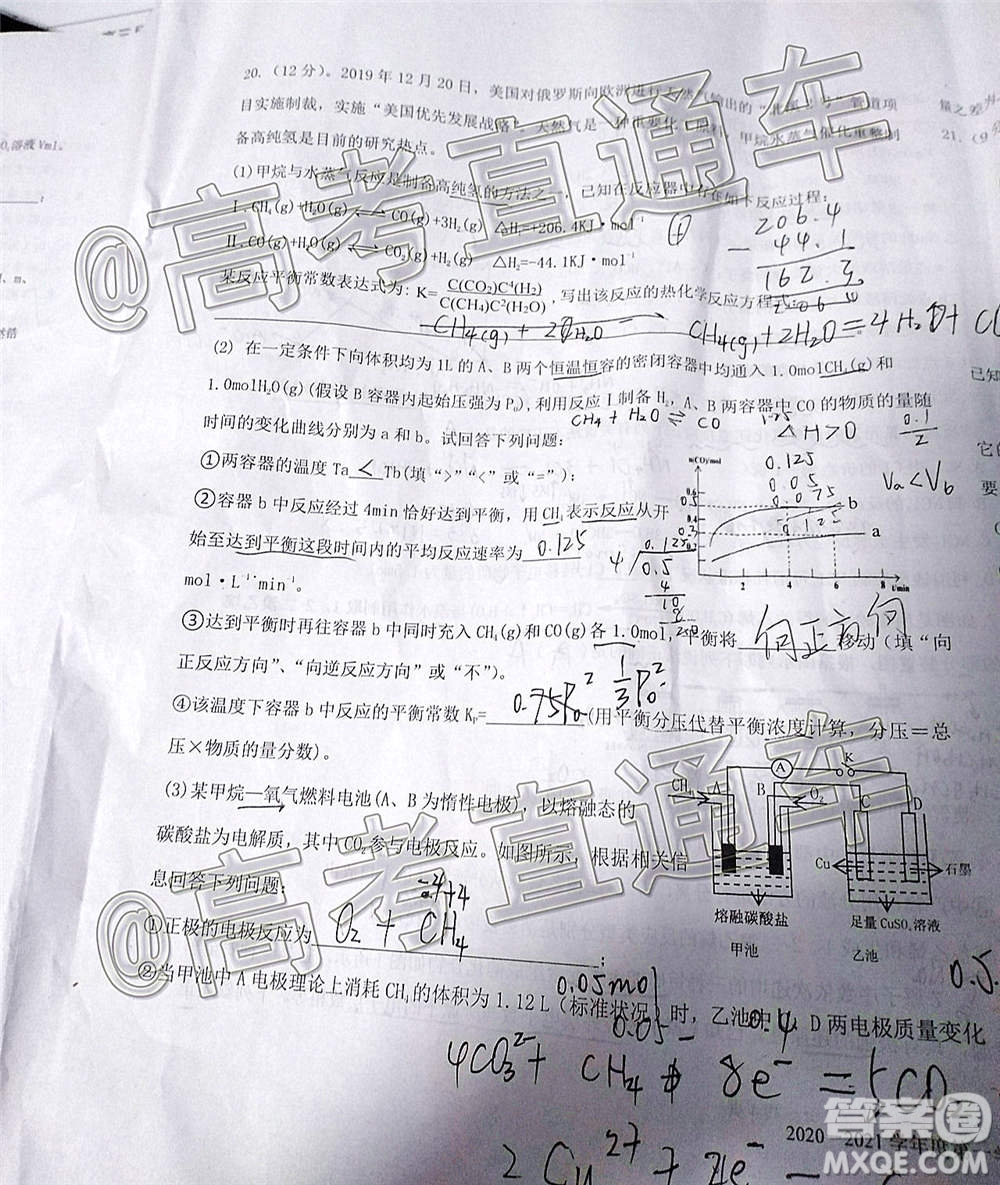 20. (12分)。2019年12月20日，美国对俄罗斯向欧洲进行天然气输出的“北溪二号”管道项
目实施制裁，实施“美国优先发展战略”。天然气是一种重要化工原料，甲烷水蒸气催化重整制
备高纯氢是目前的研究热点。
(1)甲烷与水蒸气反应是制备高纯氢的方法之一，已知在反应器中存在如下反应过程：
Ⅰ.CH₄(g)+H₂O(g) ⇌ CO(g)+3H₂(g) △H₁=+206.4KJ·mol⁻¹
Ⅱ.CO(g)+H₂O(g) ⇌ CO₂(g)+H₂(g) △H₂=-44.1KJ·mol⁻¹
206.4
- 44.1
162.3
206
某反应平衡常数表达式为：K=C(CO₂)C⁴(H₂)/C(CH₄)C²(H₂O)，写出该反应的热化学反应方程式：
CH₄(g) + 2H₂O
CH₄(g) + 2H₂O = 4H₂O + C
(2) 在一定条件下向体积均为1L的A、B两个恒温恒容的密闭容器中均通入1.0molCH₄(g)和
1.0molH₂O(g)(假设B容器内起始压强为P₀)，利用反应Ⅰ制备H₂，A、B两容器中CO的物质的量随
CH₄ + H₂O ⇌ CO
△H>0
0.1/2
时间的变化曲线分别为a和b。试回答下列问题：
①两容器的温度Ta < Tb(填“>”“<”或“=”)；
n(CO)/mol
0.6
0.5
0.4
0.3
0.2
b
a
2 4 6 8 t/min
0.125
0.05
0.075
0.125
Va<Vb
②容器b中反应经过4min恰好达到平衡，用CH₄表示反应从开
始至达到平衡这段时间内的平均反应速率为 0.125
mol·L⁻¹min⁻¹。
0.125
4/0.5
4
10
③达到平衡时再往容器b中同时充入CH₄(g)和CO(g)各1.0mol，平衡将 向正方向 移动（填“向
正反应方向”、“向逆反应方向”或“不”）。
1/3P₀²
④该温度下容器b中反应的平衡常数Kₚ= 0.75P₀² (用平衡分压代替平衡浓度计算，分压＝总
压×物质的量分数)。
(3)某甲烷—氧气燃料电池(A、B为惰性电极)，以熔融态的
碳酸盐为电解质，其中CO₂参与电极反应。如图所示，根据相关信
息回答下列问题：
A
K
CH₄
A
B
O₂
C
D
Cu
石墨
熔融碳酸盐
足量CuSO₄溶液
甲池
乙池
-4 +4
①正极的电极反应为 O₂ + CH₄ ；
0.05mol
0.5
②当甲池中A电极理论上消耗CH₄的体积为1.12L（标准状况）时，乙池中C、D两电极质量变化
0.05
0.4
4CO₃²⁻ + CH₄ 8e⁻ = 5CO
2Cu²⁺ + 4e⁻
2020 2021学年
O₂溶液Vml。
m。
量之差
21.（9
已知
它的
要
@高考直通车
@高考直通车
答案圈
MXQE.COM